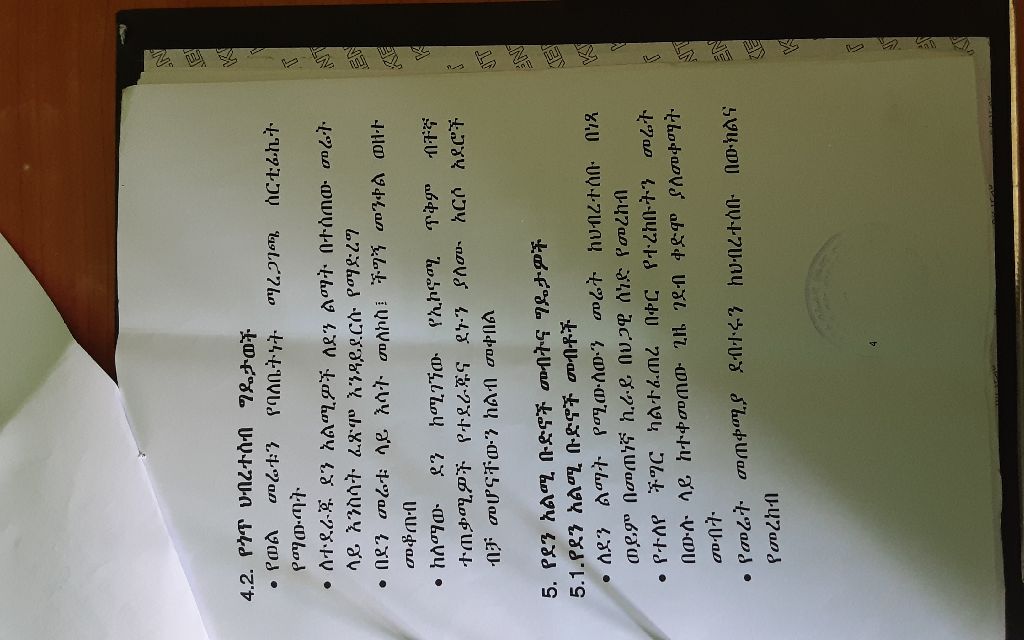 4.2. የነጥ ህብረተሰብ ግዴታወች
• የወል መሬቱን የባለቤትነት ማረጋገጫ ሰርቲፊኬት
የማውጣት
• ለተደራጁ ደን አልሚዎች ለደን ልማት በተሰጠው መሬት
ላይ እንስሳት ፈጽሞ እንዳይደርሱ የማድረግ
• በደን መሬቱ ላይ እሳት መለኮስ፤ ችግኝ መንቀል ወዘተ
መቆጠብ
• ከለማው ደን ከሚገኘው የኢኮኖሚ ጥቅም ብቸኛ
ተጠቃሚዎች የተደራጁና ደኑን ያለሙ አርሶ አደሮች
ብቻ መሆናቸውን ከልብ መቀበል
5. የደን አልሚ ቡድኖች መብትና ግዴታዎች
5.1.የደን አልሚ ቡድኖች መብቶች
• ለደን ልማት የሚውለውን መሬት ከህብረተሰቡ በነጻ
ወይም በመጠነኛ ኪራይ በህጋዊ ሰነድ የመረከብ
• የተለየ ችግር ካልተፈጠረ በቀር የተረከቡትን መሬት
በውሉ ላይ ከተቀመጠው ጊዜ ገደብ ቀድሞ ያለመቀማት
መብት
• የመሬት መጠቀሚያ ደብተሩን ከህብረተሰቡ በውክልና
የመረከብ
4